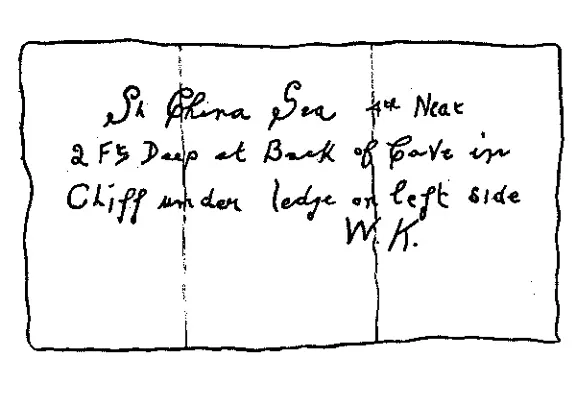 Sh China Sea 4th Near
2 Fts Deep at Back of Cave in
Cliff under ledge on left side
W.K.